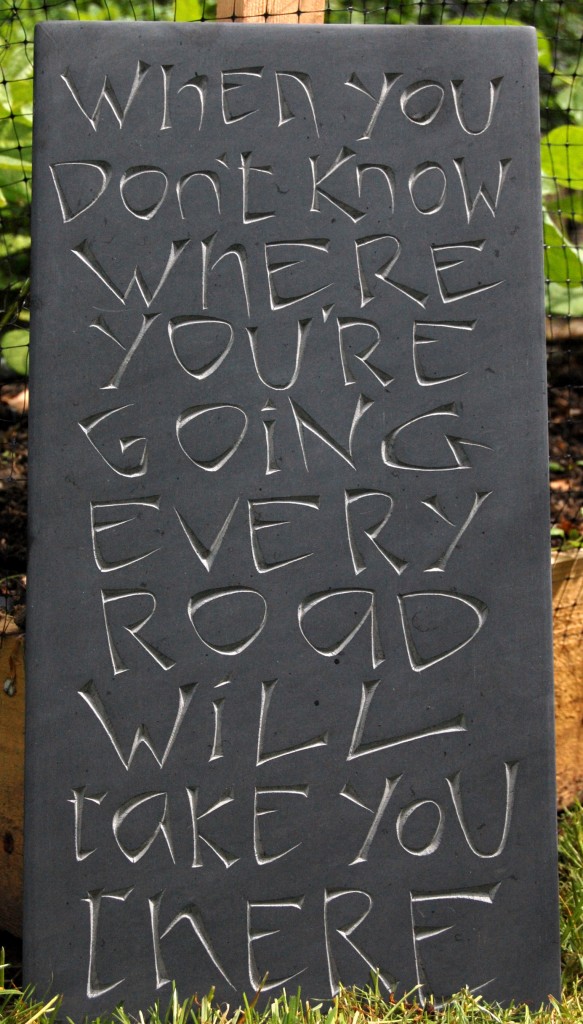 WhEn YOU
DOn't KnOW
WhERE
YOU'RE
GOiNG
EVERY
ROaD
WiLL
takE YOU
thERE